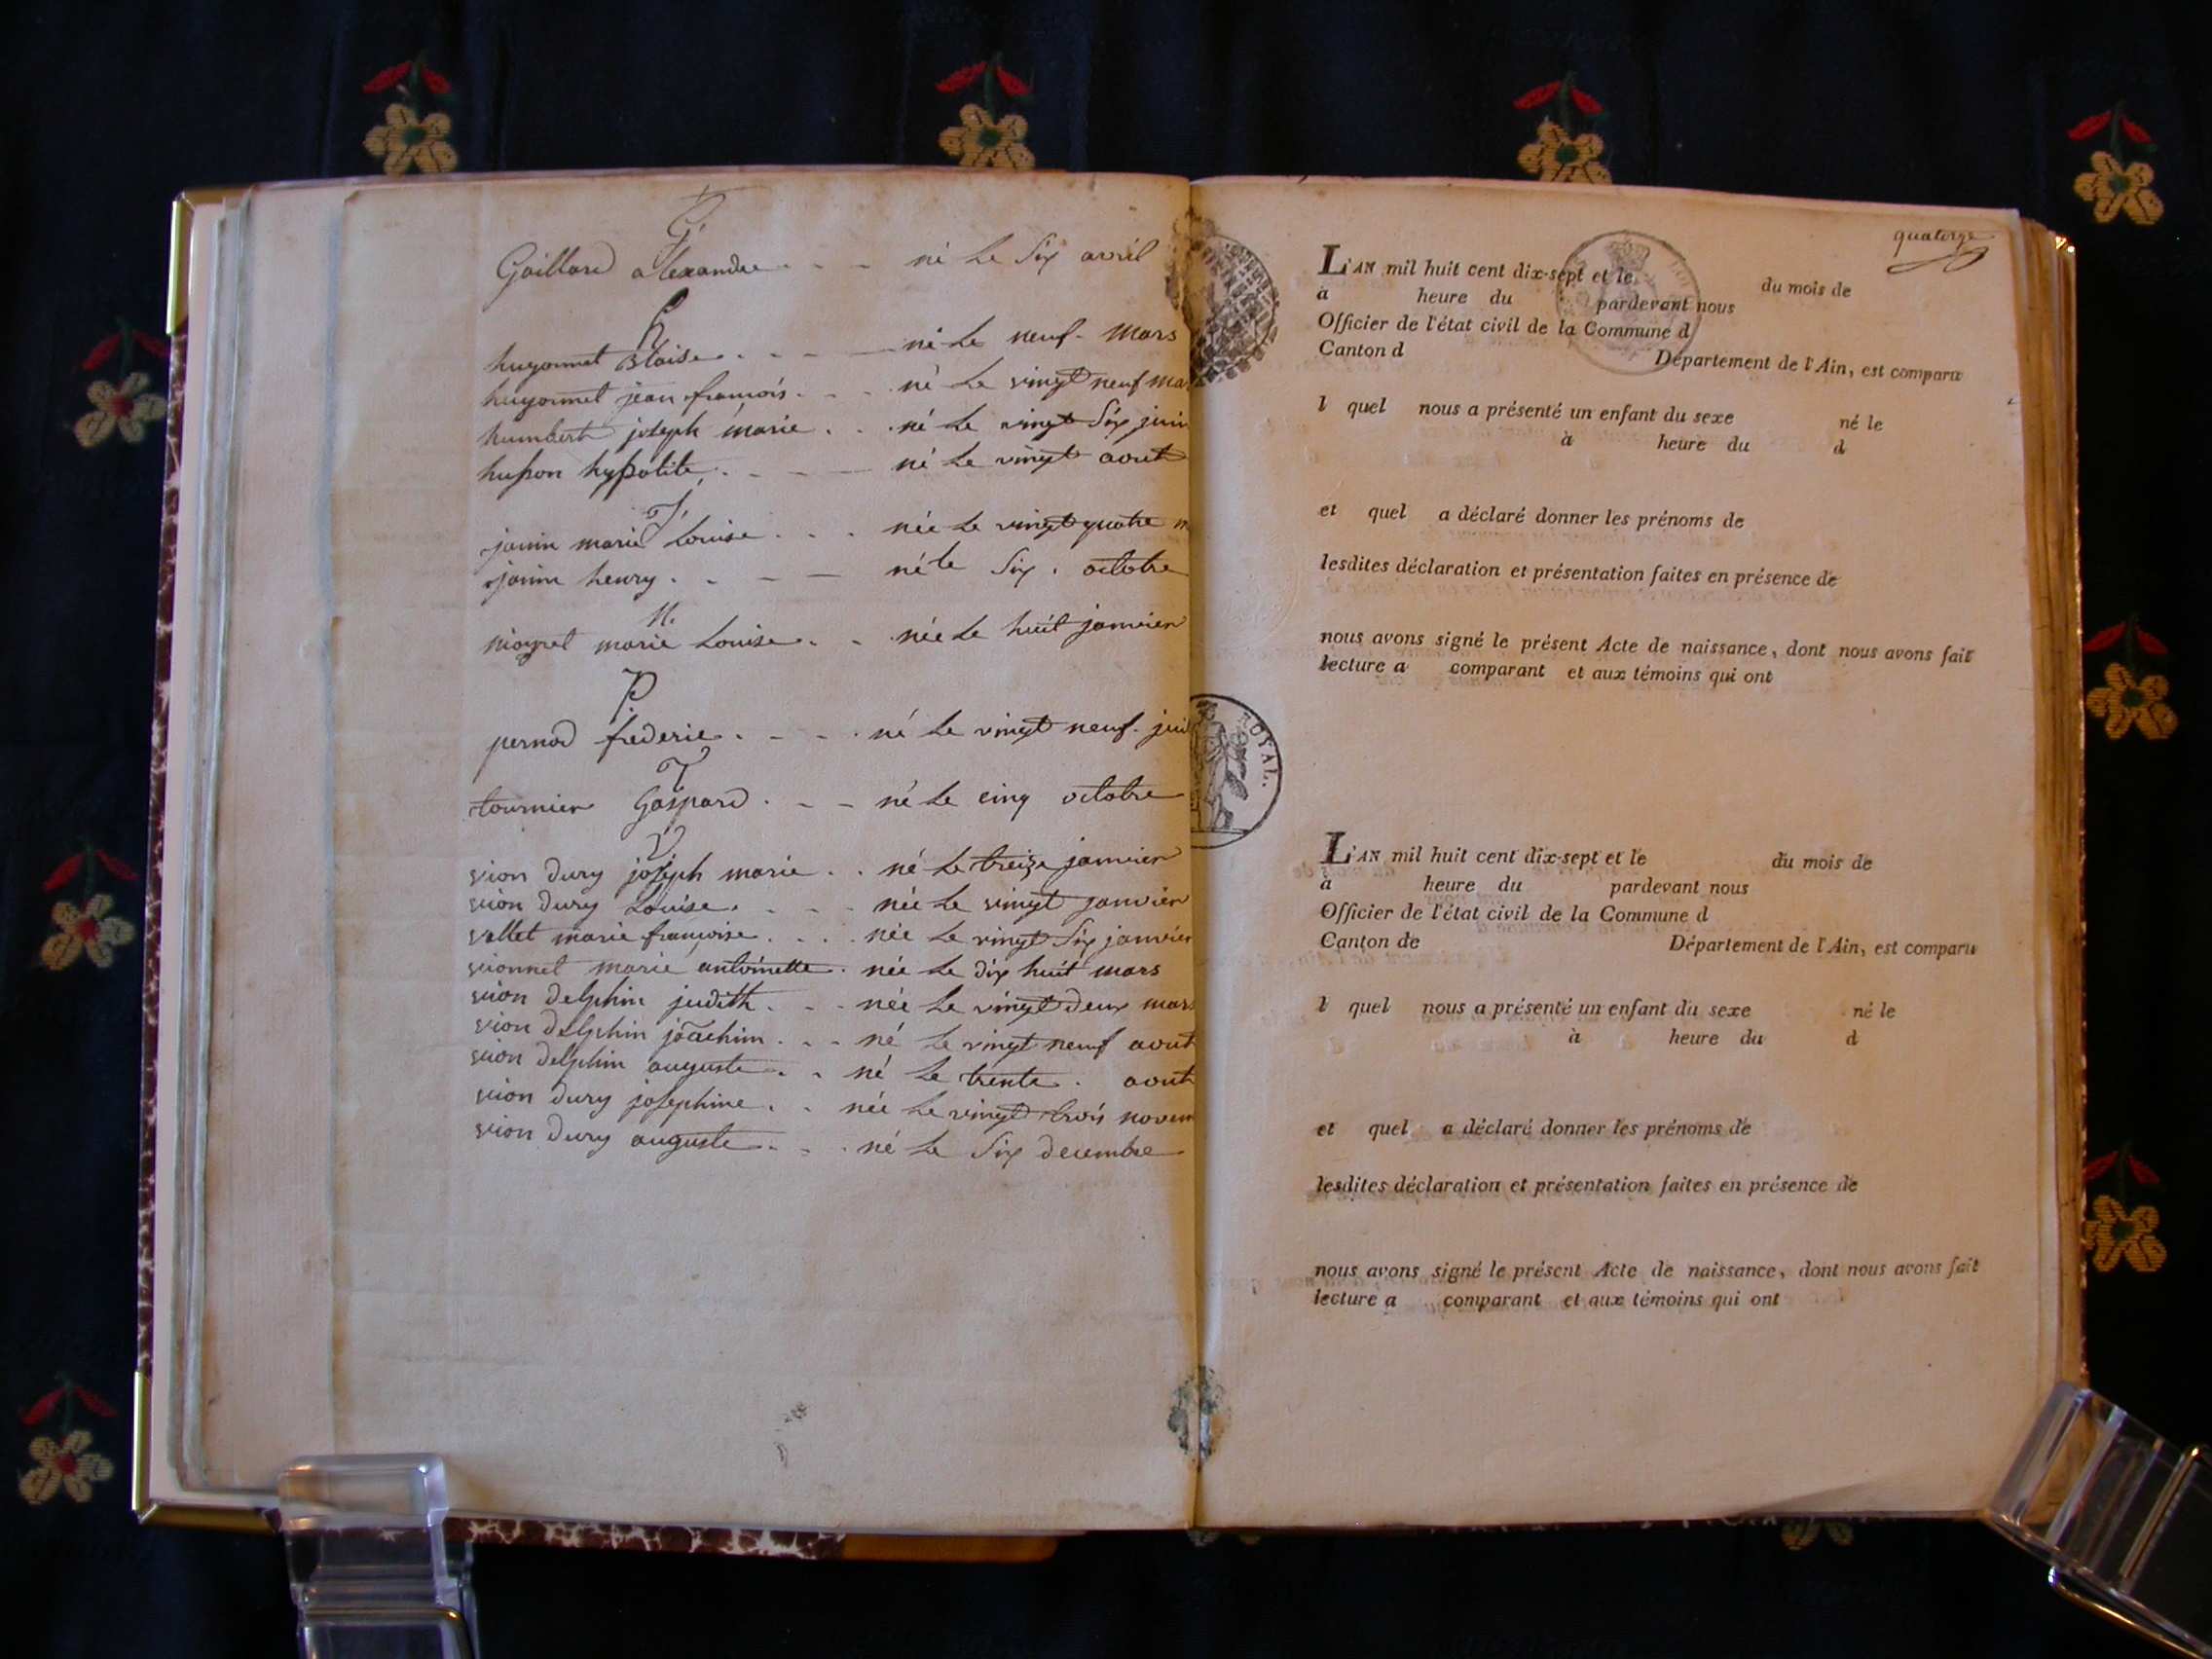 G.
Gaillard alexandre né Le Six avril
h
hugonnet Blaise né Le neuf mars
hugonnet jean françois né Le vingt neuf ma
humbert joseph marie né Le vingt Six juin
husson hypolite né Le vingt aout
J.
janin marie Louise née Le vingt quatre m
janin henry né le Six octobre
N.
niogret marie Louise née Le huit janvier
P
pernod frederic né Le vingt neuf jui
T
tournier Gaspard né Le cinq octobre
V
vion dury joseph marie né Le treize janvier
vion dury Louise née Le vingt janvier
vallet marie françoise née Le vingt Six janvier
vionnet marie antoinette née Le dix huit mars
vion delphin judith née Le vingt deux mars
vion delphin joachim né Le vingt neuf aout
vion delphin auguste né Le trente aout
vion dury josephine née Le vingt trois novem
vion dury auguste né Le Six decembre
ROYAL.
quatorze
L'AN mil huit cent dix-sept et le du mois de
à heure du pardevant nous
Officier de l'état civil de la Commune d
Canton d Département de l'Ain, est comparu
l quel nous a présenté un enfant du sexe né le
à heure du d
et quel a déclaré donner les prénoms de
lesdites déclaration et présentation faites en présence de
nous avons signé le présent Acte de naissance, dont nous avons fait
lecture a comparant et aux témoins qui ont
L'AN mil huit cent dix-sept et le du mois de
à heure du pardevant nous
Officier de l'état civil de la Commune d
Canton de Département de l'Ain, est comparu
l quel nous a présenté un enfant du sexe né le
à heure du d
et quel a déclaré donner les prénoms de
lesdites déclaration et présentation faites en présence de
nous avons signé le présent Acte de naissance, dont nous avons fait
lecture a comparant et aux témoins qui ont